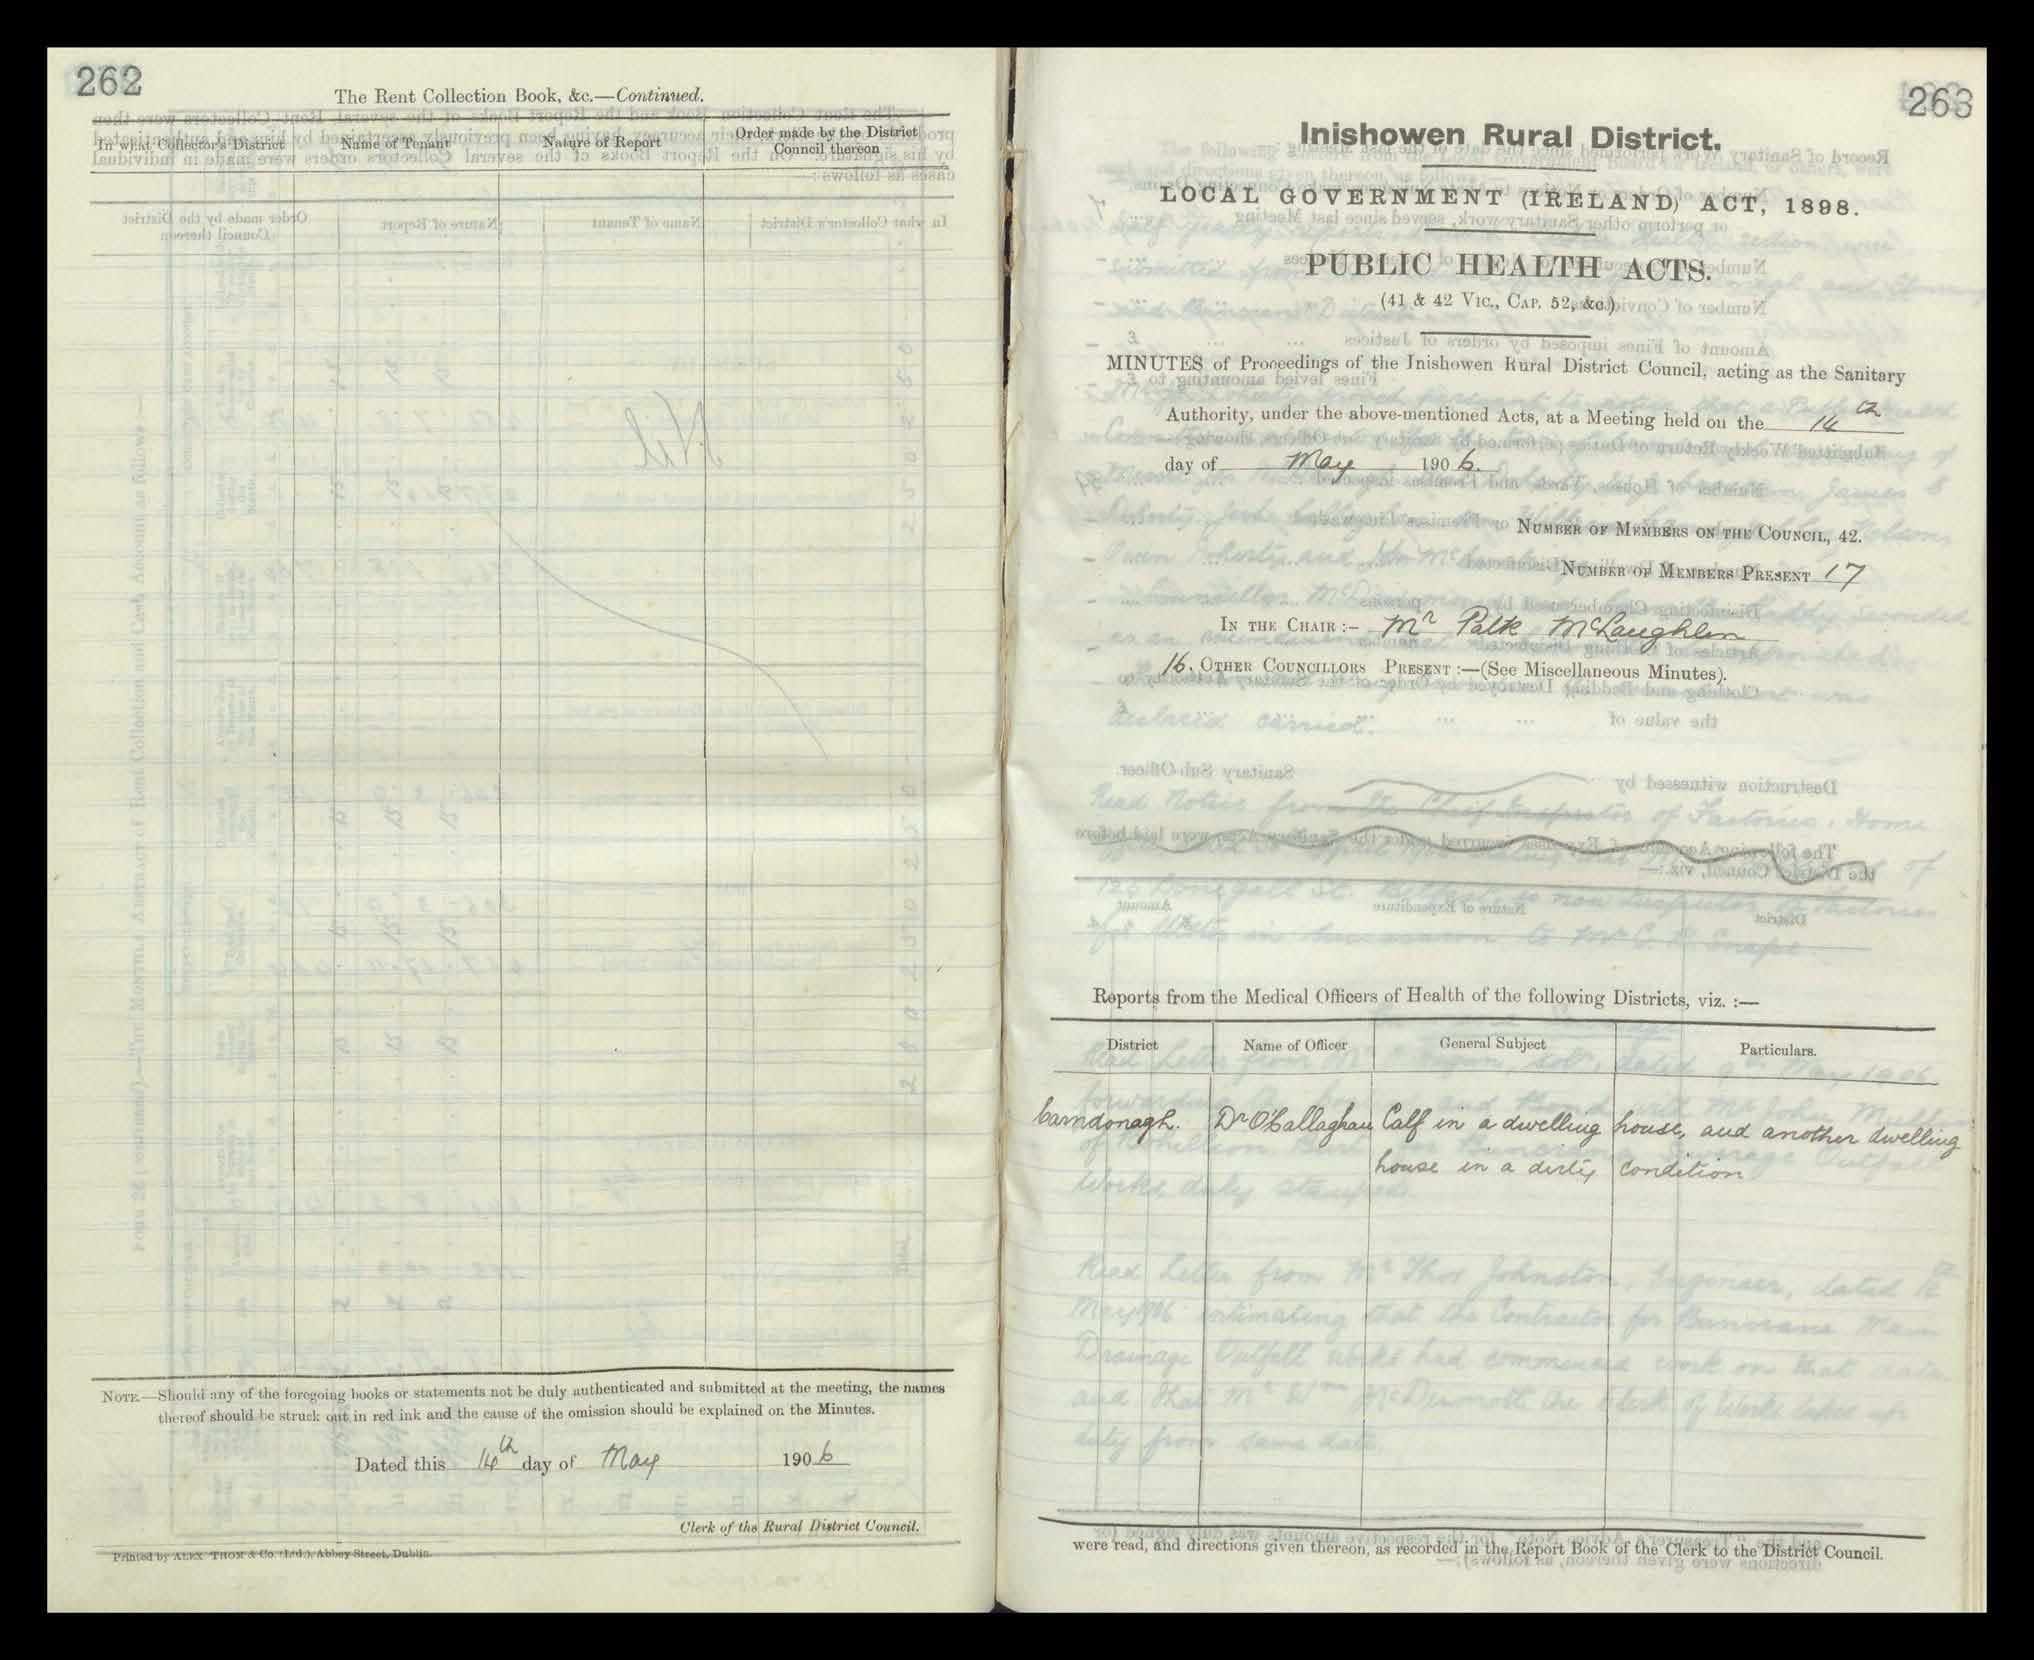 262
The Rent Collection Book, &c.—Continued.
In what Collector's District
Name of Tenant
Nature of Report
Order made by the District
Council thereon
Nil
NOTE.—Should any of the foregoing books or statements not be duly authenticated and submitted at the meeting, the names
thereof should be struck out in red ink and the cause of the omission should be explained on the Minutes.
Dated this 14th day of May 1906
Clerk of the Rural District Council.
Printed by ALEX. THOM & Co. (Ltd.), Abbey Street, Dublin.
263
Inishowen Rural District.
LOCAL GOVERNMENT (IRELAND) ACT, 1898.
PUBLIC HEALTH ACTS.
(41 & 42 VIC., CAP. 52, &c.)
MINUTES of Proceedings of the Inishowen Rural District Council, acting as the Sanitary
Authority, under the above-mentioned Acts, at a Meeting held on the 14th
day of May 1906.
NUMBER OF MEMBERS ON THE COUNCIL, 42.
NUMBER OF MEMBERS PRESENT 17
IN THE CHAIR :- Mr Patk McLaughlin
16. OTHER COUNCILLORS PRESENT :—(See Miscellaneous Minutes).
Reports from the Medical Officers of Health of the following Districts, viz. :—
District
Name of Officer
General Subject
Particulars.
Carndonagh. Dr O'Callaghan Calf in a dwelling house, and another dwelling
house in a dirty condition
were read, and directions given thereon, as recorded in the Report Book of the Clerk to the District Council.